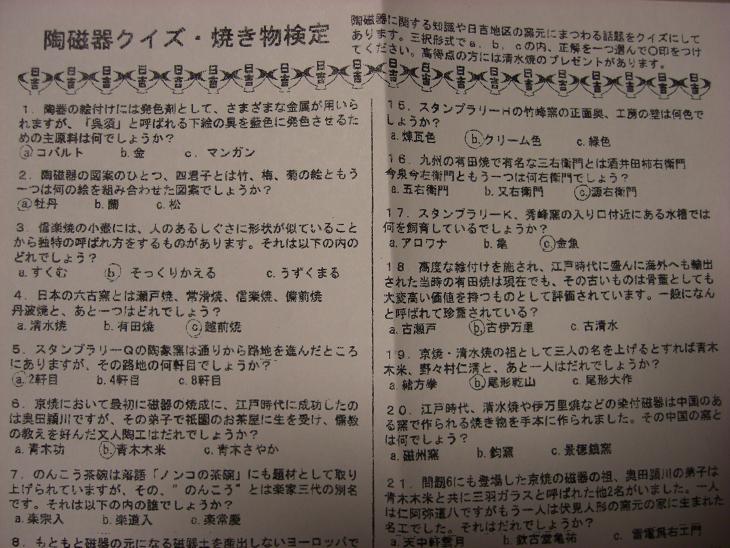 陶磁器クイズ・焼き物検定
陶磁器に関する知識や日吉地区の窯元にまつわる話題をクイズにして
あります。三択形式でa、b、cの内、正解を一つ選んで〇印をつけ
てください。高得点の方には清水焼のプレゼントがあります。
日吉 日吉 日吉 日吉 日吉 日吉 日吉 日吉 日吉 日吉 日吉 日吉 日吉 日吉 日吉
1．陶器の絵付けには発色剤として、さまざまな金属が用いら
れますが、「呉須」と呼ばれる下絵の具を藍色に発色させるた
めの主原料は何でしょうか？
a コバルト b. 金 c. マンガン
2．陶磁器の図案のひとつ、四君子とは竹、梅、菊の絵ともう
一つは何の絵を組み合わせた図案でしょうか？
a 牡丹 b. 蘭 c. 松
3．信楽焼の小壺には、人のあるしぐさに形状が似ていること
から独特の呼ばれ方をするものがあります。それは以下の内の
どれでしょう？
a. すくむ b そっくりかえる c. うずくまる
4．日本の六古窯とは瀬戸焼、常滑焼、信楽焼、備前焼
丹波焼と、あと一つはどれでしょう？
a. 清水焼 b. 有田焼 c 越前焼
5．スタンプラリーQの陶象窯は通りから路地を進んだところ
にありますが、その路地の何軒目でしょうか？
a. 2軒目 b. 4軒目 c. 8軒目
6．京焼において最初に磁器の焼成に、江戸時代に成功したの
は奥田頴川ですが、その弟子で祇園のお茶屋に生を受け、儒教
の教えを好んだ文人陶工はだれでしょうか？
a. 青木功 b. 青木木米 c. 青木さやか
7．のんこう茶碗は落語「ノンコの茶碗」にも題材として取り
上げられていますが、その、"のんこう"とは楽家三代の別名
です。それは以下の内の誰でしょうか？
a. 楽宗入 b. 楽道入 c. 楽常慶
8．もともと磁器の元になる磁器土を産出しないヨーロッパで
15．スタンプラリーHの竹峰窯の正面奥、工房の壁は何色で
しょうか？
a. 煉瓦色 b. クリーム色 c. 緑色
16．九州の有田焼で有名な三右衛門とは酒井田柿右衛門
今泉今右衛門ともう一つは何右衛門でしょう？
a. 五右衛門 b. 又右衛門 c. 源右衛門
17．スタンプラリーK、秀峰窯の入り口付近にある水槽では
何を飼育しているでしょうか？
a. アロワナ b. 亀 c. 金魚
18 高度な絵付けを施され、江戸時代に盛んに海外へも輸出
された当時の有田焼は現在でも、その古いものは骨董としても
大変高い価値を持つものとして評価されています。一般になん
と呼ばれて珍重されている？
a. 古瀬戸 b. 古伊万里 c. 古清水
19．京焼・清水焼の祖として三人の名を上げるとすれば青木
木米、野々村仁清と、あと一人はだれでしょうか？
a. 緒方拳 b 尾形乾山 c. 尾形大作
20．江戸時代、清水焼や伊万里焼などの染付磁器は中国のあ
る窯で作られる焼き物を手本に作られました。その中国の窯と
は何でしょう？
a. 磁州窯 b. 鈞窯 c. 景徳鎮窯
21．問題6にも登場した京焼の磁器の祖、奥田頴川の弟子は
青木木米と共に三羽ガラスと呼ばれた他2名がいました。一人
は仁阿弥道八ですがもう一人は伏見人形の窯元の家に生まれた
名工でした。それはだれでしょうか？
a. 天中軒雲月 b. 欽古堂亀祐 c. 雷電為右エ門